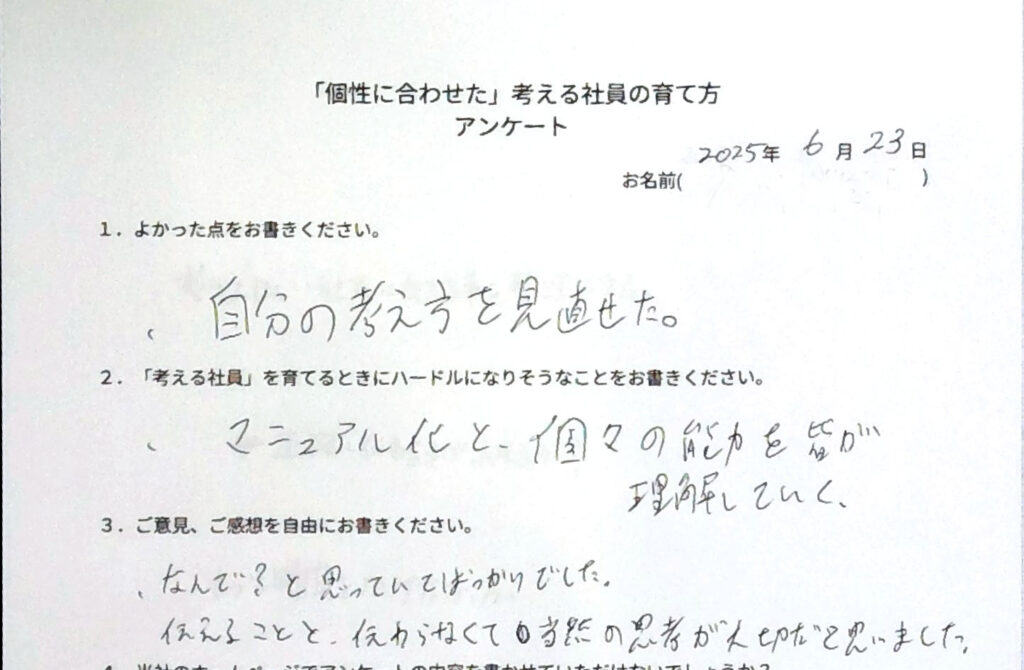 「個性に合わせた」考える社員の育て方
アンケート
2025年 6月23日
お名前( )
1．よかった点をお書きください。
、自分の考え方を見直せた。
2．「考える社員」を育てるときにハードルになりそうなことをお書きください。
、マニュアル化と、個々の能力を皆が
理解していく、
3．ご意見、ご感想を自由にお書きください。
、なんで?と思っていてばっかりでした。
伝えることと、伝わらなくて当然の思考が大切だと思いました。
4．当社のホームページでアンケートの内容を書かせていただけないでしょうか？